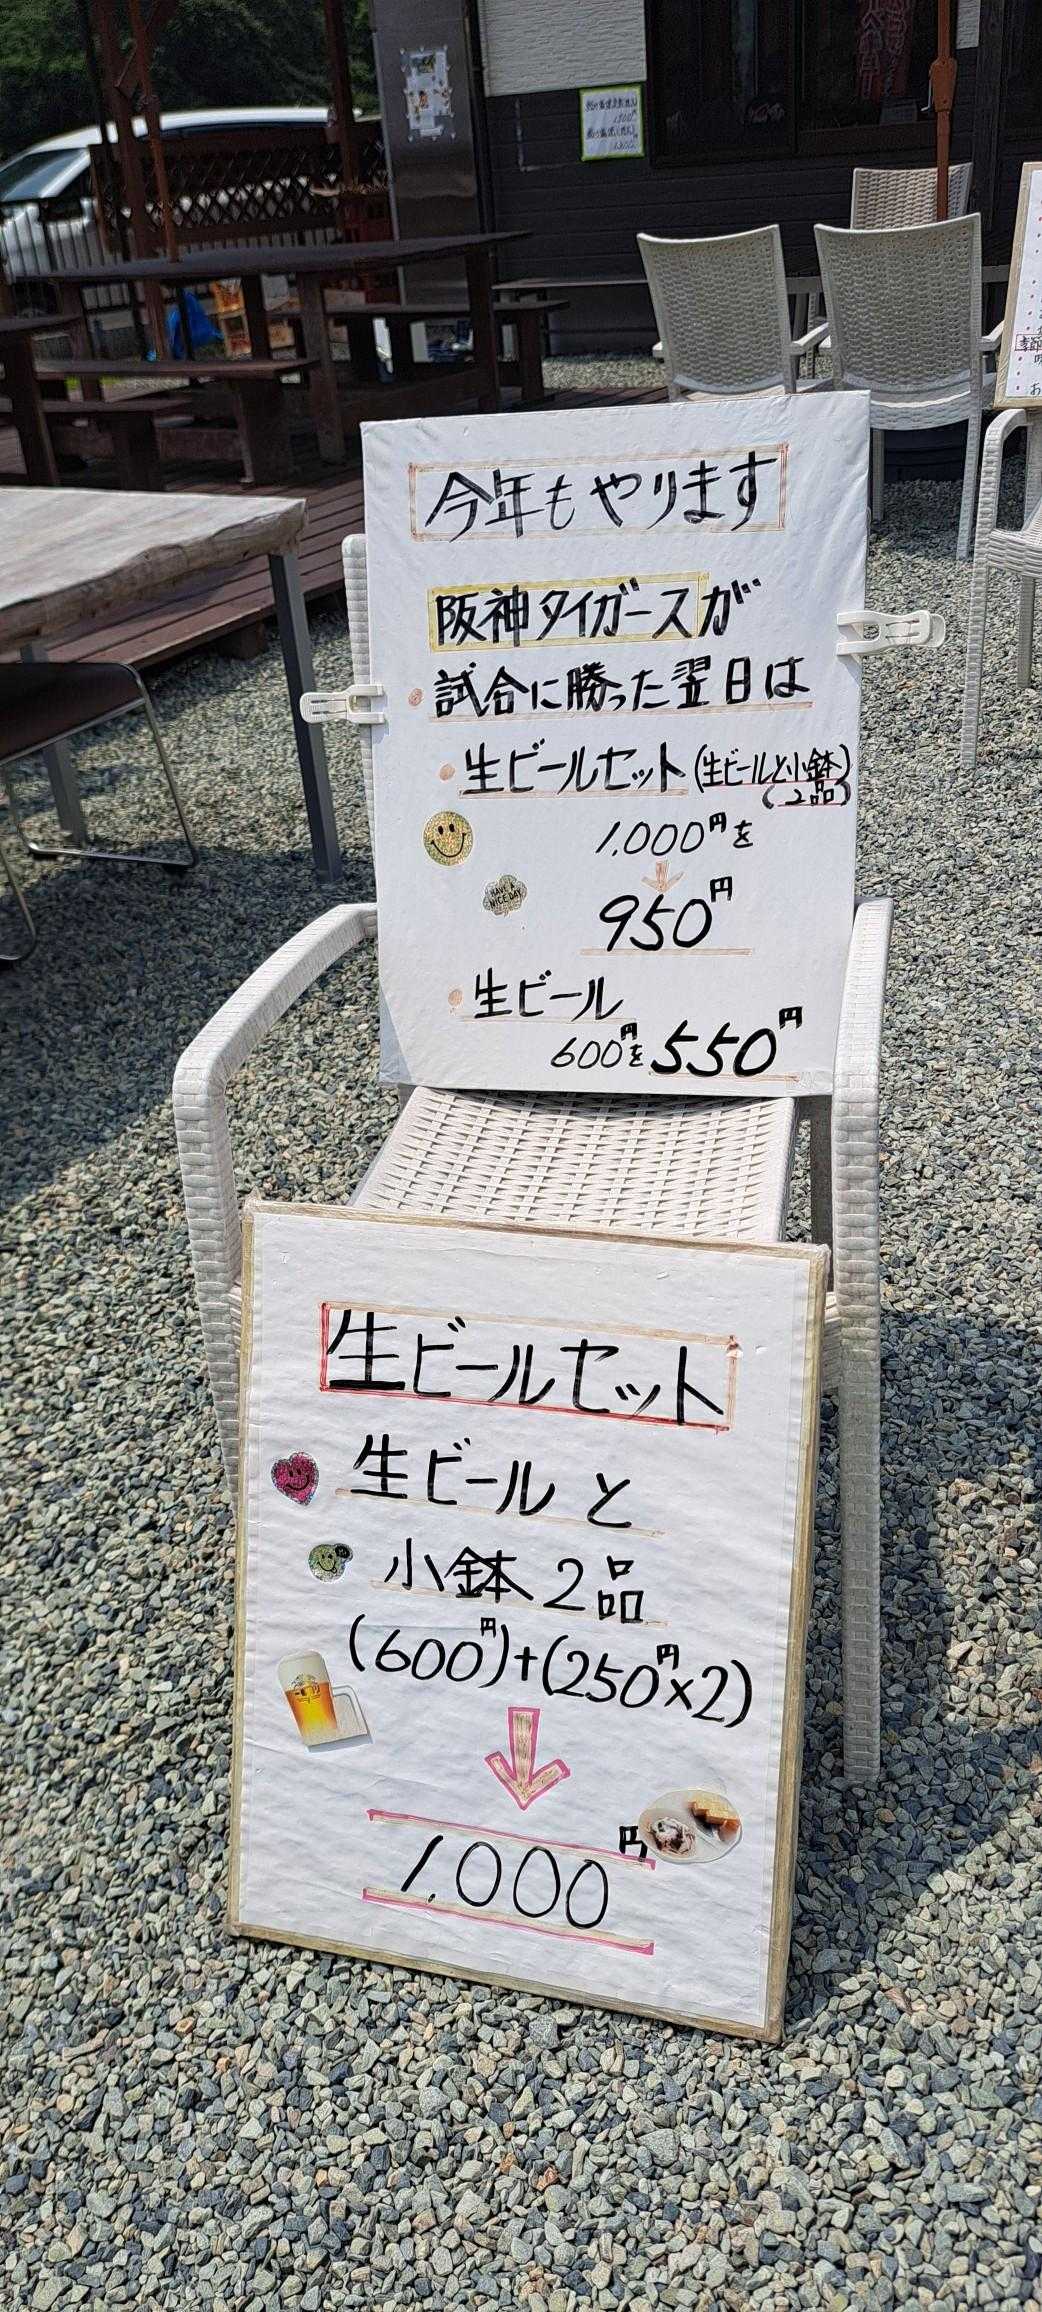 今年もやります
阪神タイガースが
・試合に勝った翌日は
・生ビールセット(生ビールと小鉢)
(2品)
1,000円を
HAVE A
NICE DAY
950円
・生ビール
600円を550円
生ビールセット
生ビールと
小鉢2品
(600円)+(250円×2)
1,000円